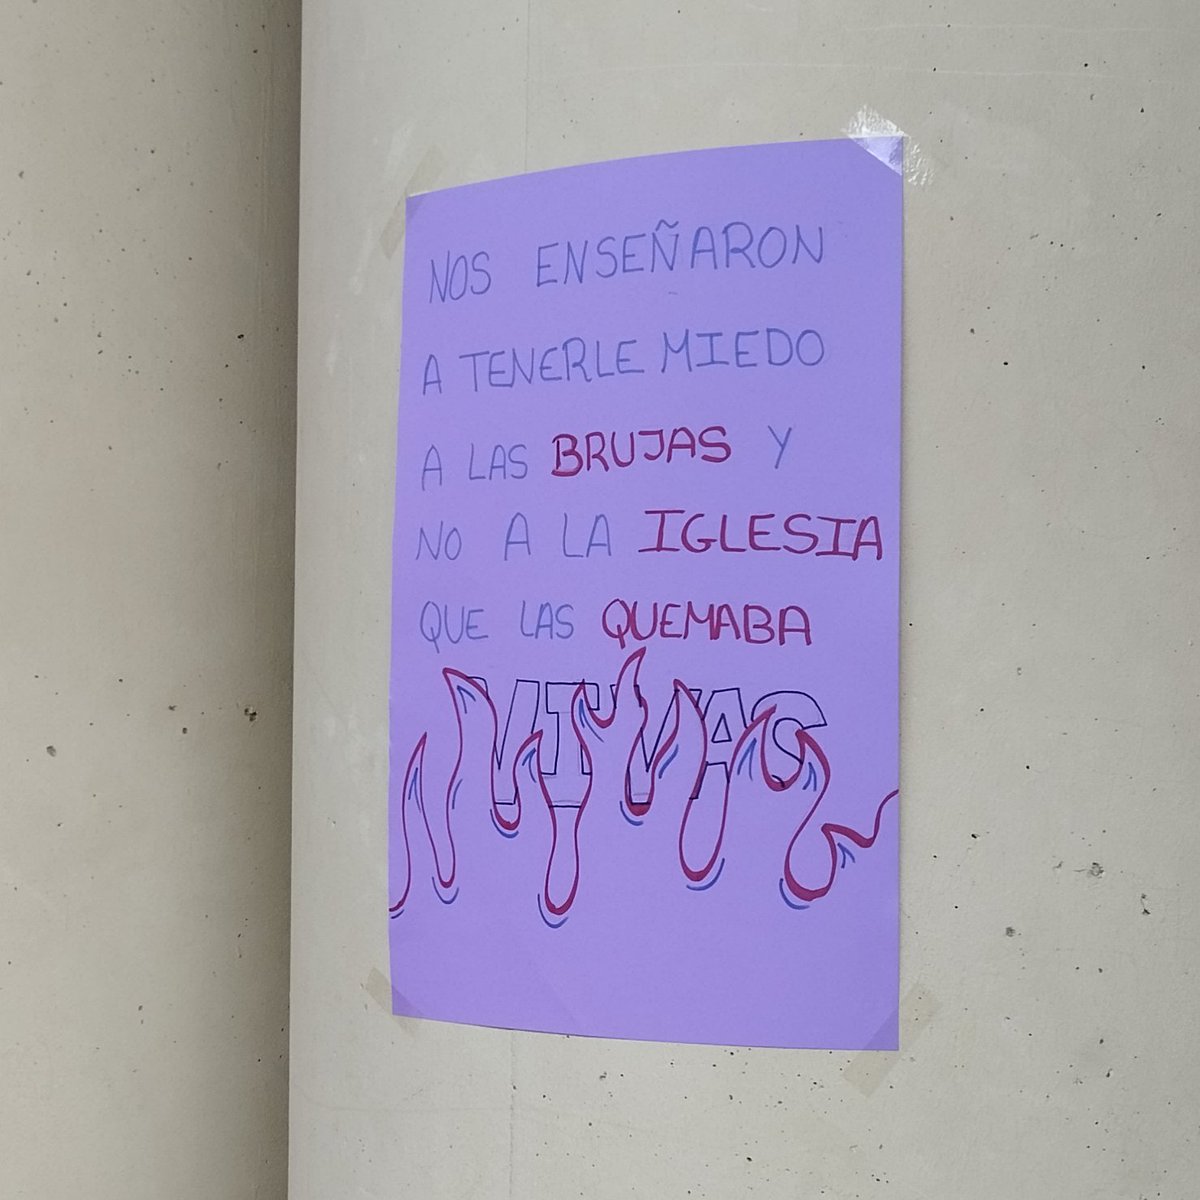 NOS ENSEÑARON
A TENERLE MIEDO
A LAS BRUJAS Y
NO A LA IGLESIA
QUE LAS QUEMABA
VIVAS